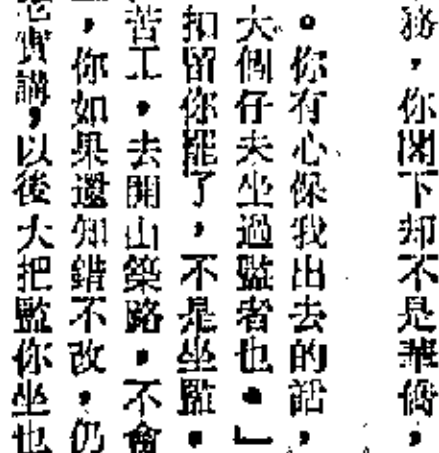 務，你閣下却不是華僑，
。你有心保我出去的話，
大個仔未坐過監者也。」
扣留你罷了，不是坐監，
苦工，去開山築路，不會
，你如果還知錯不改，仍
老實講，以後大把監你坐也